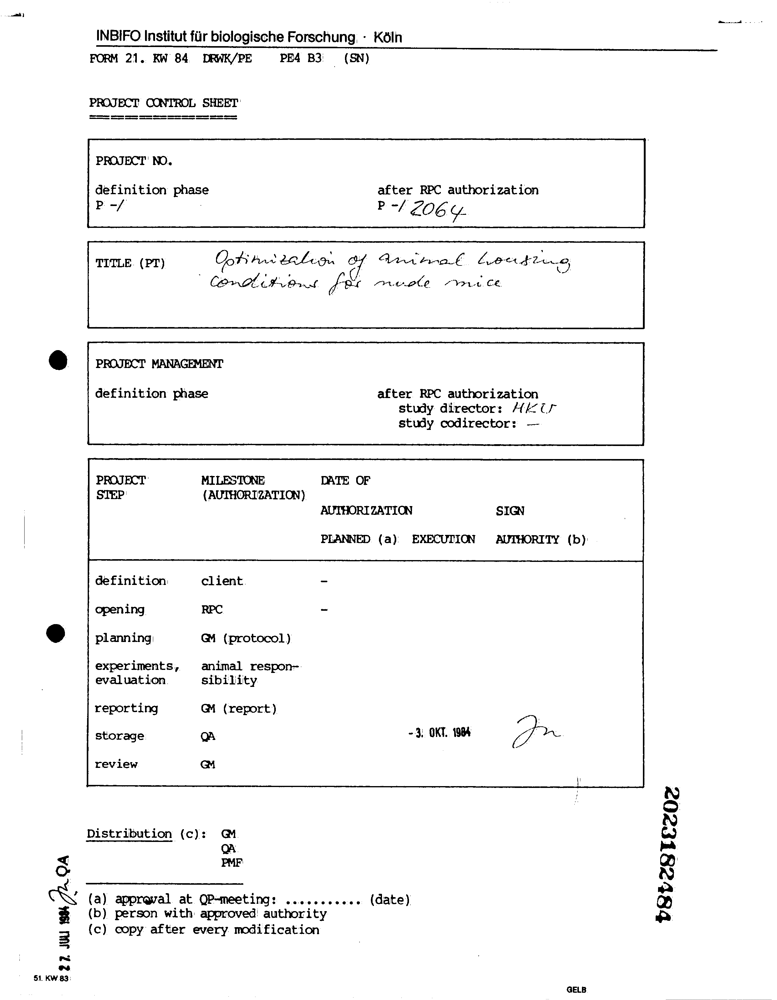 INBIFO Institut für biologische Forschung · Köln
FORM 21. KW 84 DRWK/PE PE4 B3 (SN)
PROJECT CONTROL SHEET
PROJECT NO.
definition phase after RPC authorization
P -/ P -/ 2064
TITLE (PT) Optimization of animal housing
conditions for nude mice
PROJECT MANAGEMENT
definition phase after RPC authorization
study director: HKU
study codirector: —
PROJECT MILESTONE DATE OF
STEP (AUTHORIZATION)
AUTHORIZATION SIGN
PLANNED (a) EXECUTION AUTHORITY (b)
definition client –
opening RPC –
planning GM (protocol)
experiments, animal respon-
evaluation sibility
reporting GM (report)
storage QA -3. OKT. 1984
review GM
Distribution (c): GM
QA
PMF
(a) approval at QP-meeting: ........... (date)
(b) person with approved authority
(c) copy after every modification
27. JULI 1984 QA
51. KW 83
GELB
2023182484